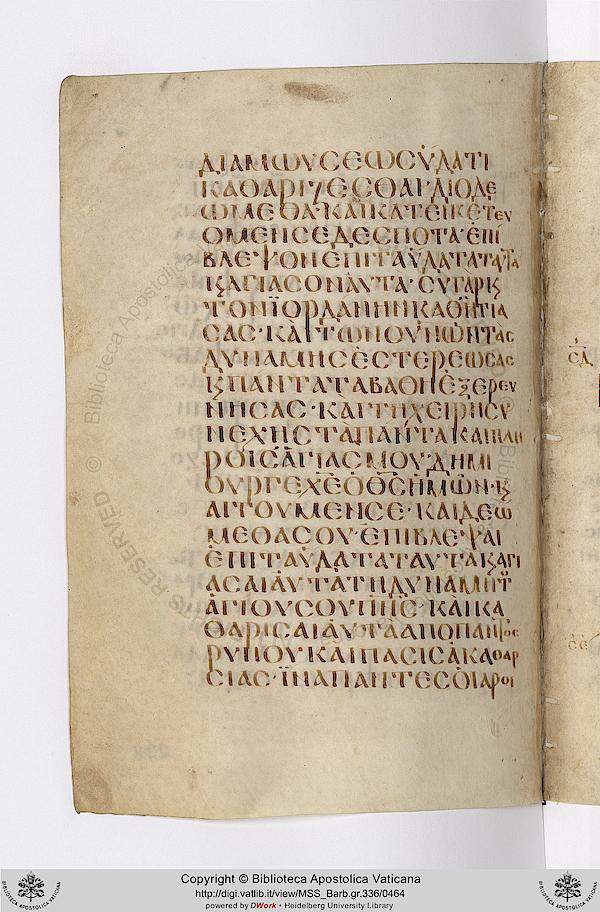 ΔΙΑΜΩΥΣΕΩΣΥΔΑΤΙ
ΚΑΘΑΡΙΖΕΣΘΑΙ·ΔΙΟΔΕ
ΩΜΕΘΑ·ΚΑΙΙΚΑΤΕΙΚΕΤΕΥ
ΟΜΕΝΣΕΔΕΣΠΟΤΑ·ΕΠΙ
ΒΛΕΨΟΝΕΠΙΤΑΥΔΑΤΑΤΑΥΤΑ
ϗΑΓΙΑΣΟΝΑΥΤΑ·ΣΥΓΑΡΕΙΣ
ΤΟΝΪΟΡΔΑΝΗΝΚΑΘΗΓΙΑ
ΣΑΣ·ΚΑΙΤΩΝΟΥΝΩΝΤΑΣ
ΔΥΝΑΜΗΣΕΣΤΕΡΕΩΣΑΣ
ϗΠΑΝΤΑΤΑΒΑΘΗΕΞΕΡΕΥ
ΝΗΣΑΣ·ΚΑΙΤΗΧΕΙΡΗΣΥ
ΝΕΧΗΣΤΑΠΑΝΤΑΚΑΙΠΛΗ
ΡΟΙΣΑΓΙΑΣΜΟΥ·ΔΗΜΙ
ΟΥΡΓΕΧΕΟΘΣΗΜΩΝ·ϗ
ΑΙΤΟΥΜΕΝΣΕ·ΚΑΙΔΕΩ
ΜΕΘΑΣΟΥ·ΕΠΙΒΛΕΨΑΙ
ΕΠΙΤΑΥΔΑΤΑΤΑΥΤΑϗΑΓΙ
ΑΣΑΙΑΥΤΑΤΗΔΥΝΑΜΙΤΟΥ
ΑΓΙΟΥΣΟΥΠΝΣ·ΚΑΙΚΑ
ΘΑΡΙΣΑΙΑΥΤΑΑΠΟΠΑΝΤΟΣ
ΡΥΠΟΥΚΑΙΠΑΣΙΣΑΚΑΘΑΡ
ΣΙΑΣ·ΪΝΑΠΑΝΤΕΣΟΙΑΡΟΙ
Copyright © Biblioteca Apostolica Vaticana
http://digi.vatlib.it/view/MSS_Barb.gr.336/0464
powered by DWork • Heidelberg University Library